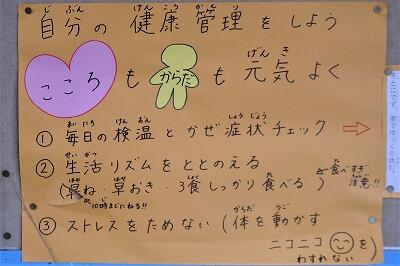 自分の健康管理をしよう
じ ぶん けん こう かん り
こころもからだも元気よく
げん き
①毎日の検温とかぜ症状チェック⇨
まい にち けん おん しょう じょう
②生活リズムをととのえる
せい かつ
(早ね・早おき・3食しっかり食べる)
はや はや しょく た
←食べすぎ注意!!
た
10時までにねる!!
じ
③ストレスをためない(体を動かす
からだ うご
ニコニコを)
わすれない